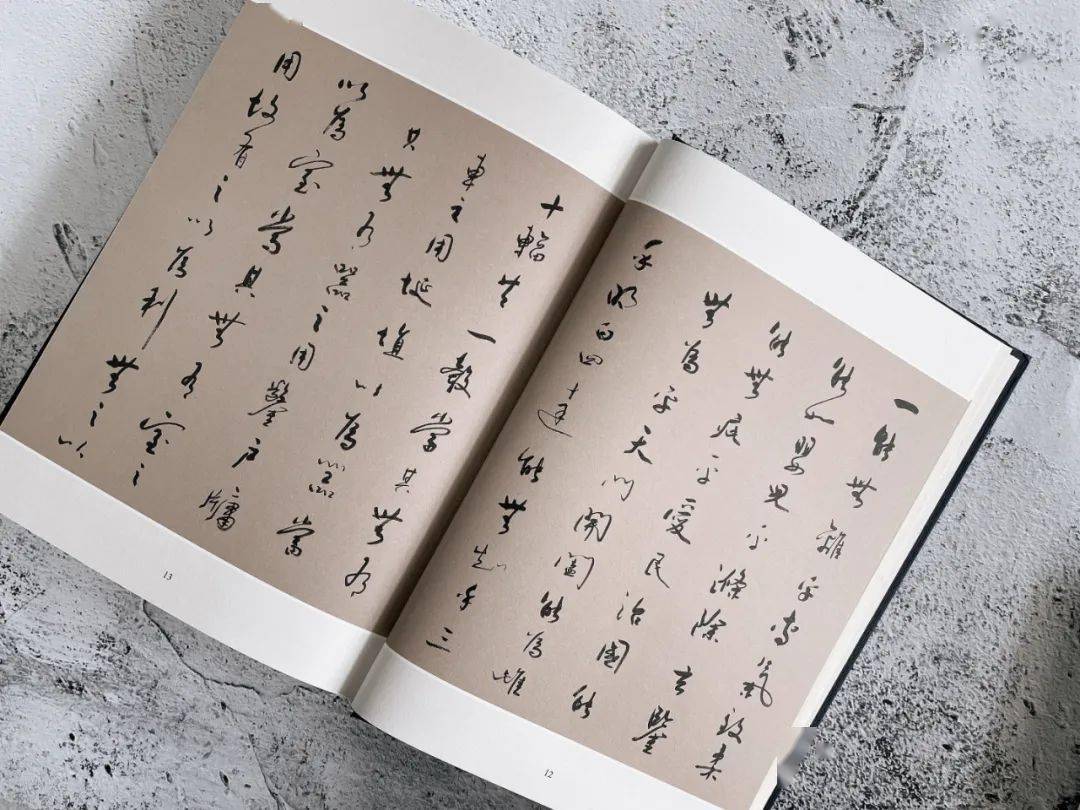 一能無離乎専氣致柔
能如嬰兒乎滌除玄鑒
能無疵乎愛民治國能
無為乎天門開闔能為雌
乎明白四達能無知乎三
12
十輻共一轂當其無有
車之用埏埴以為器當
其無有器之用鑿戶牖
以為室當其無有室之
用故有之以為利無之以
13